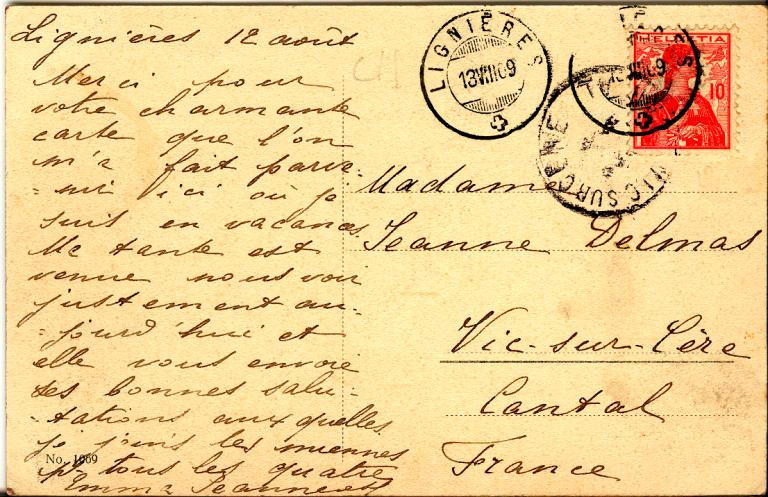 Lignières 12 août
Merci pour
votre charmante
carte que l'on
m'a fait parve-
-nir ici où je
suis en vacances
Ma tante est
venue nous voir
justement au-
-jourd'hui et
elle vous envoie
ses bonnes salu-
-tations auxquelles
je joins les miennes
pr tous les quatre
Emma
No. 1069
LIGNIÈRES
13 VIII 09
HELVETIA
10
VIC SUR CERE
Madame
Jeanne Delmas
Vic-sur-Cère
Cantal
France